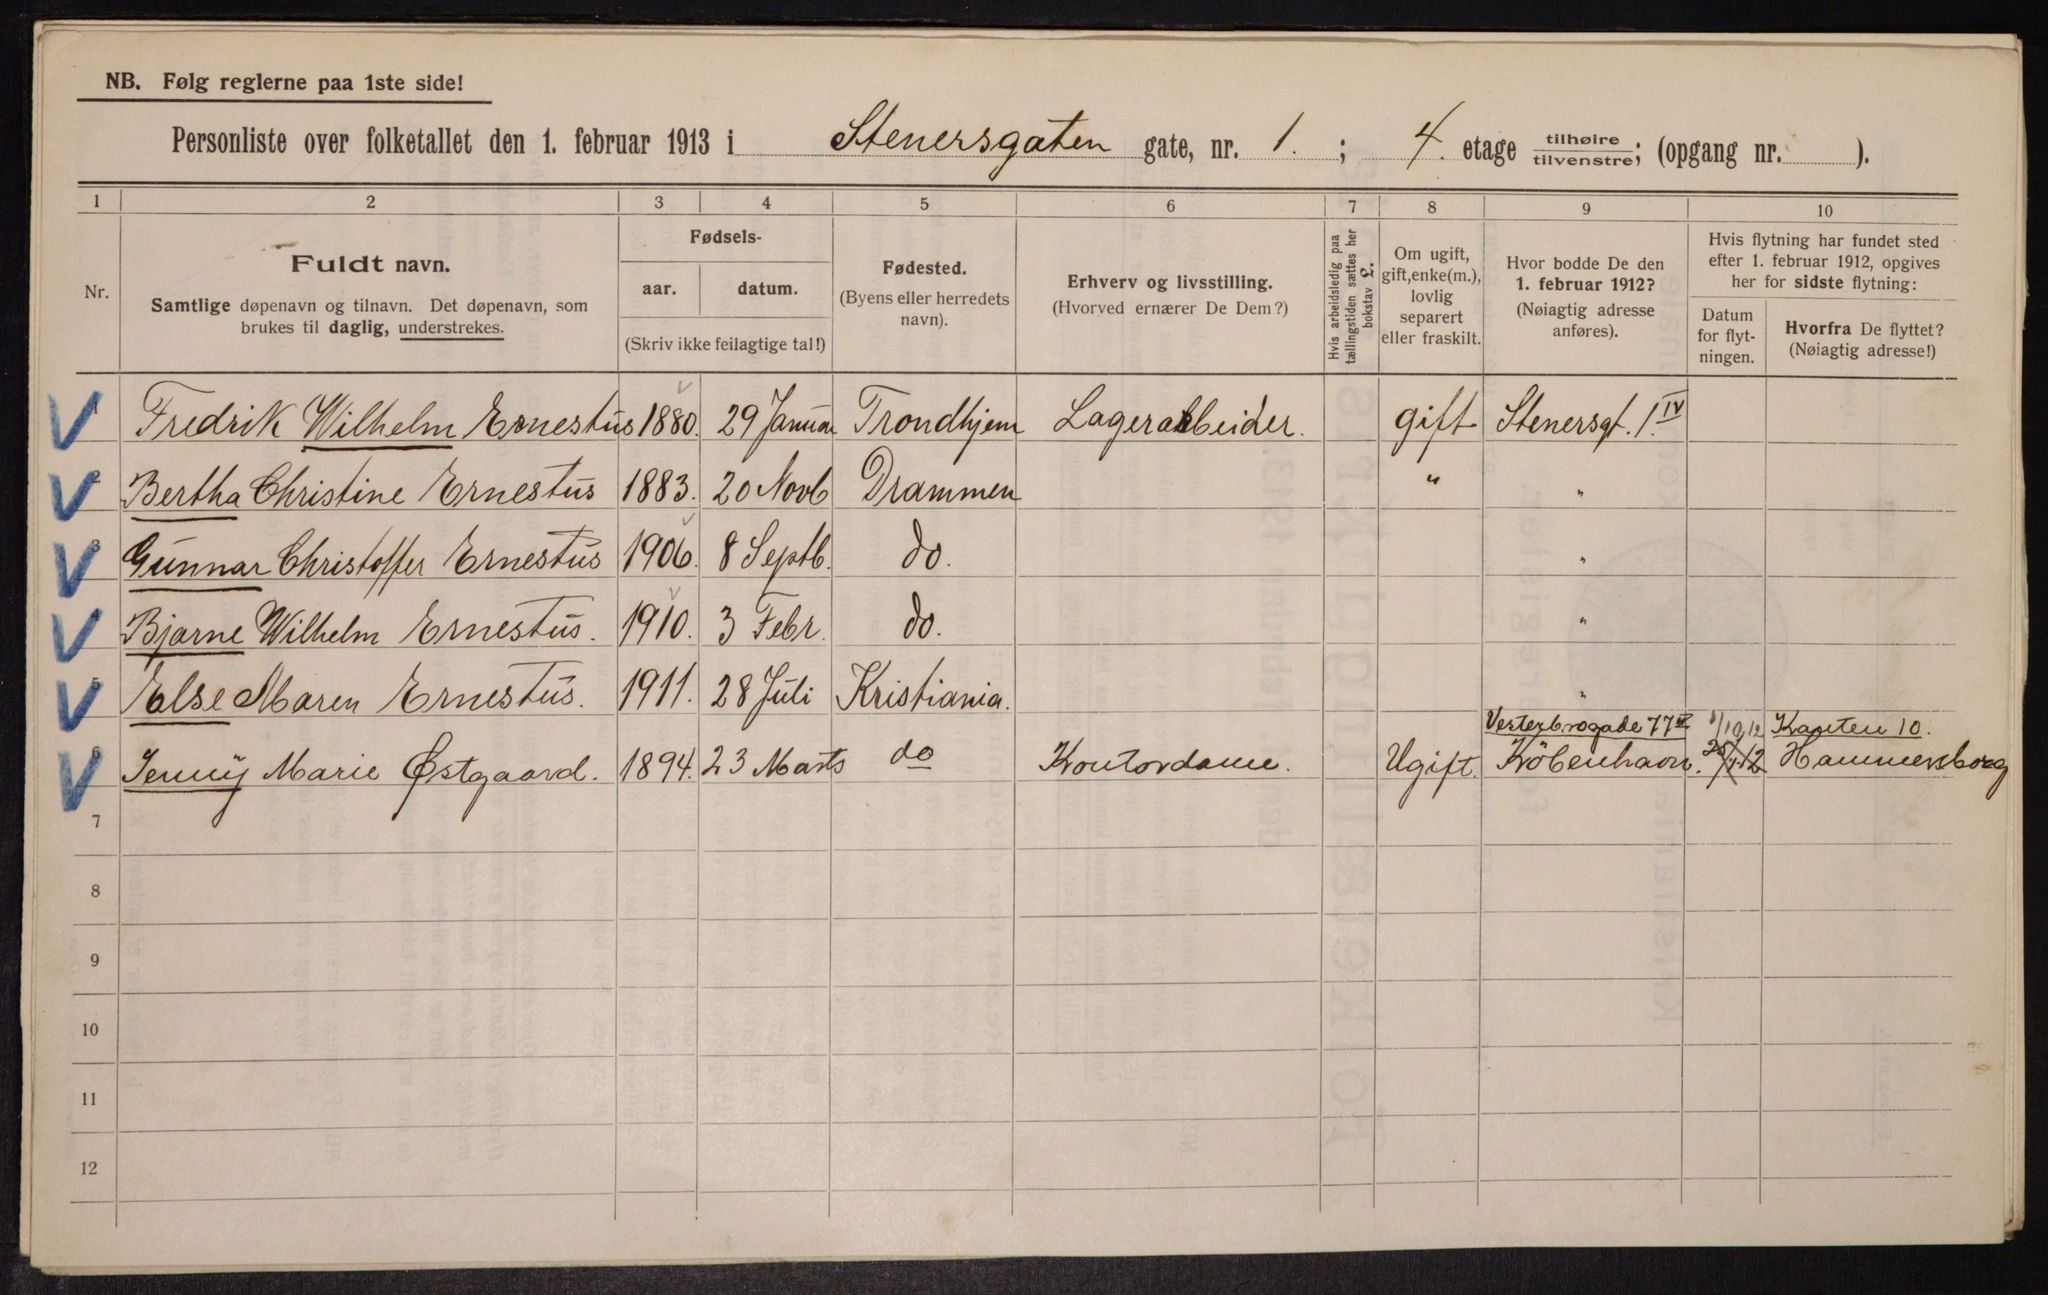 NB. Følg reglerne paa 1ste side!
Personliste over folketallet den 1. februar 1913 i Stenersgaten gate, nr. 1. ; 4. etage tilhøire tilvenstre; (opgang nr. ).
1 2 3 4 5 6 7 8 9 10
Nr.
Fuldt navn.
Samtlige døpenavn og tilnavn. Det døpenavn, som
brukes til daglig, understrekes.
Fødsels-
aar. datum.
(Skriv ikke feilagtige tal!)
Fødested.
(Byens eller herredets
navn).
Erhverv og livsstilling.
(Hvorved ernærer De Dem?)
Hvis arbeidsledig paa
tællingstiden sættes her
bokstav L.
Om ugift,
gift, enke(m.),
lovlig
separert
eller fraskilt.
Hvor bodde De den
1. februar 1912?
(Nøiagtig adresse
anføres).
Hvis flytning har fundet sted
efter 1. februar 1912, opgives
her for sidste flytning:
Datum
for flyt-
ningen.
Hvorfra De flyttet?
(Nøiagtig adresse!)
1 Fredrik Wilhelm Ernestus 1880. 29 Januar Trondhjem Lagerarbeider. gift Stenersgt. 1. IV
2 Bertha Christine Ernestus 1883. 20 Novb Drammen " "
3 Gunnar Christoffer Ernestus 1906. 8 Septb. do. "
4 Bjarne Wilhelm Ernestus. 1910. 3 Febr. do. "
5 Else Maren Ernestus. 1911. 28 Juli Kristiania. "
Vesterbrogade 77 /10 12 10.
6 Jenny Marie Østgaard. 1894. 23 Marts do Kontordame. Ugift. Köbenhavn. Hammersborg
7
8
9
10
11
12